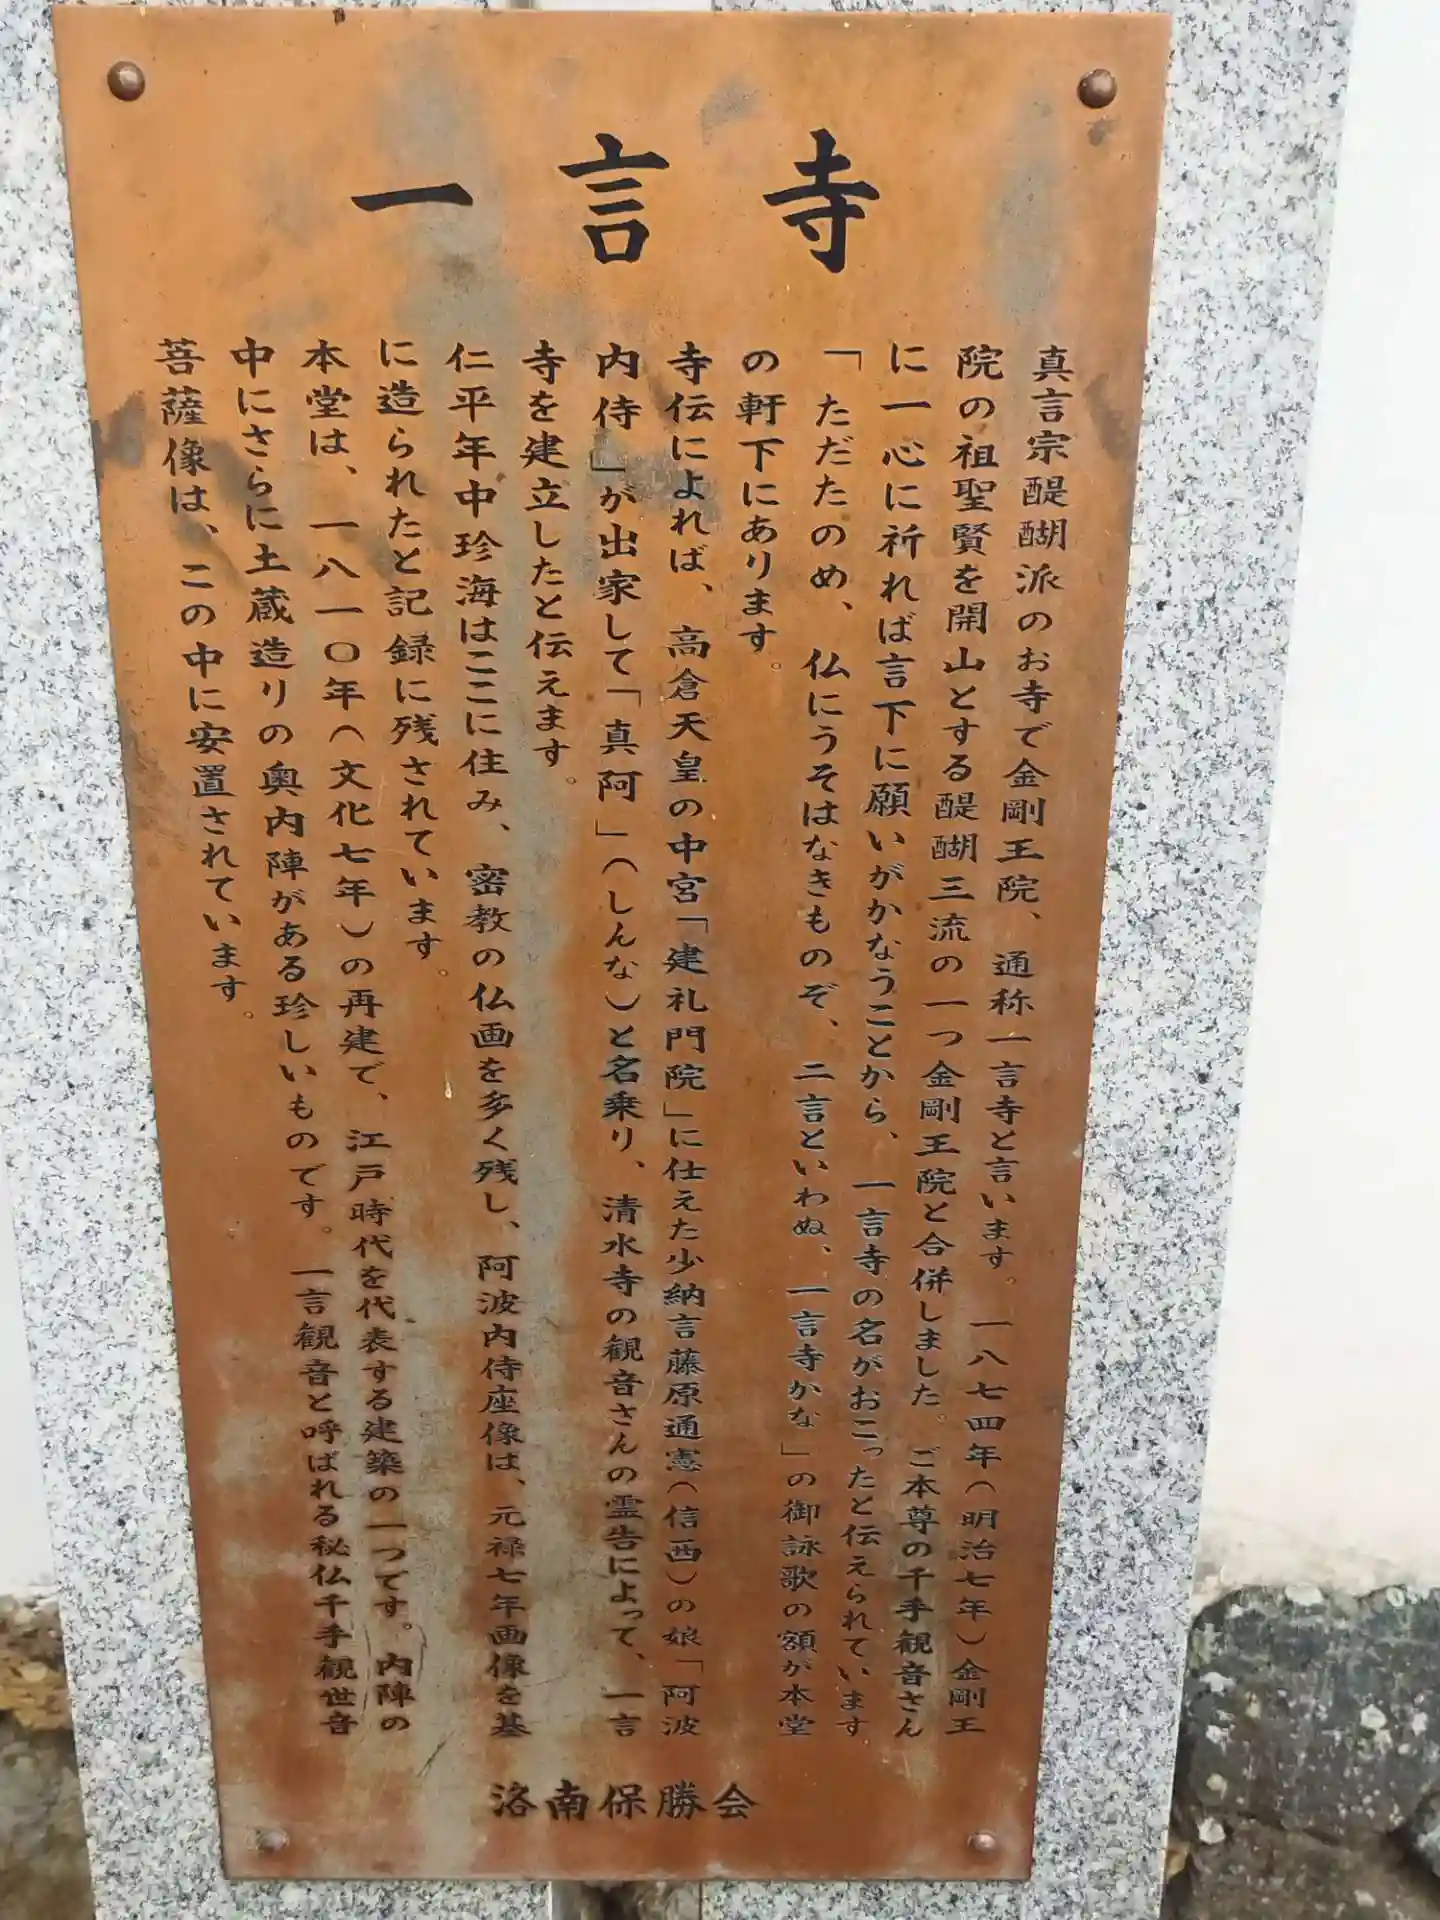 一言寺
真言宗醍醐派のお寺で金剛王院、通称一言寺と言います。一八七四年（明治七年）金剛王
院の祖聖賢を開山とする醍醐三流の一つ金剛王院と合併しました。ご本尊の千手観音さん
に一心に祈れば言下に願いがかなうことから、一言寺の名がおこったと伝えられています
「ただたのめ、仏にうそはなきものぞ、二言といわぬ、一言寺かな」の御詠歌の額が本堂
の軒下にあります。
寺伝によれば、高倉天皇の中宮「建礼門院」に仕えた少納言藤原通憲（信西）の娘「阿波
内侍」が出家して「真阿」（しんな）と名乗り、清水寺の観音さんの霊告によって、一言
寺を建立したと伝えます。
仁平年中珍海はここに住み、密教の仏画を多く残し、阿波内侍座像は、元禄七年画像を基
に造られたと記録に残されています。
本堂は、一八一〇年（文化七年）の再建で、江戸時代を代表する建築の一つです。内陣の
中にさらに土蔵造りの奥内陣がある珍しいものです。一言観音と呼ばれる秘仏千手観世音
菩薩像は、この中に安置されています。
洛南保勝会